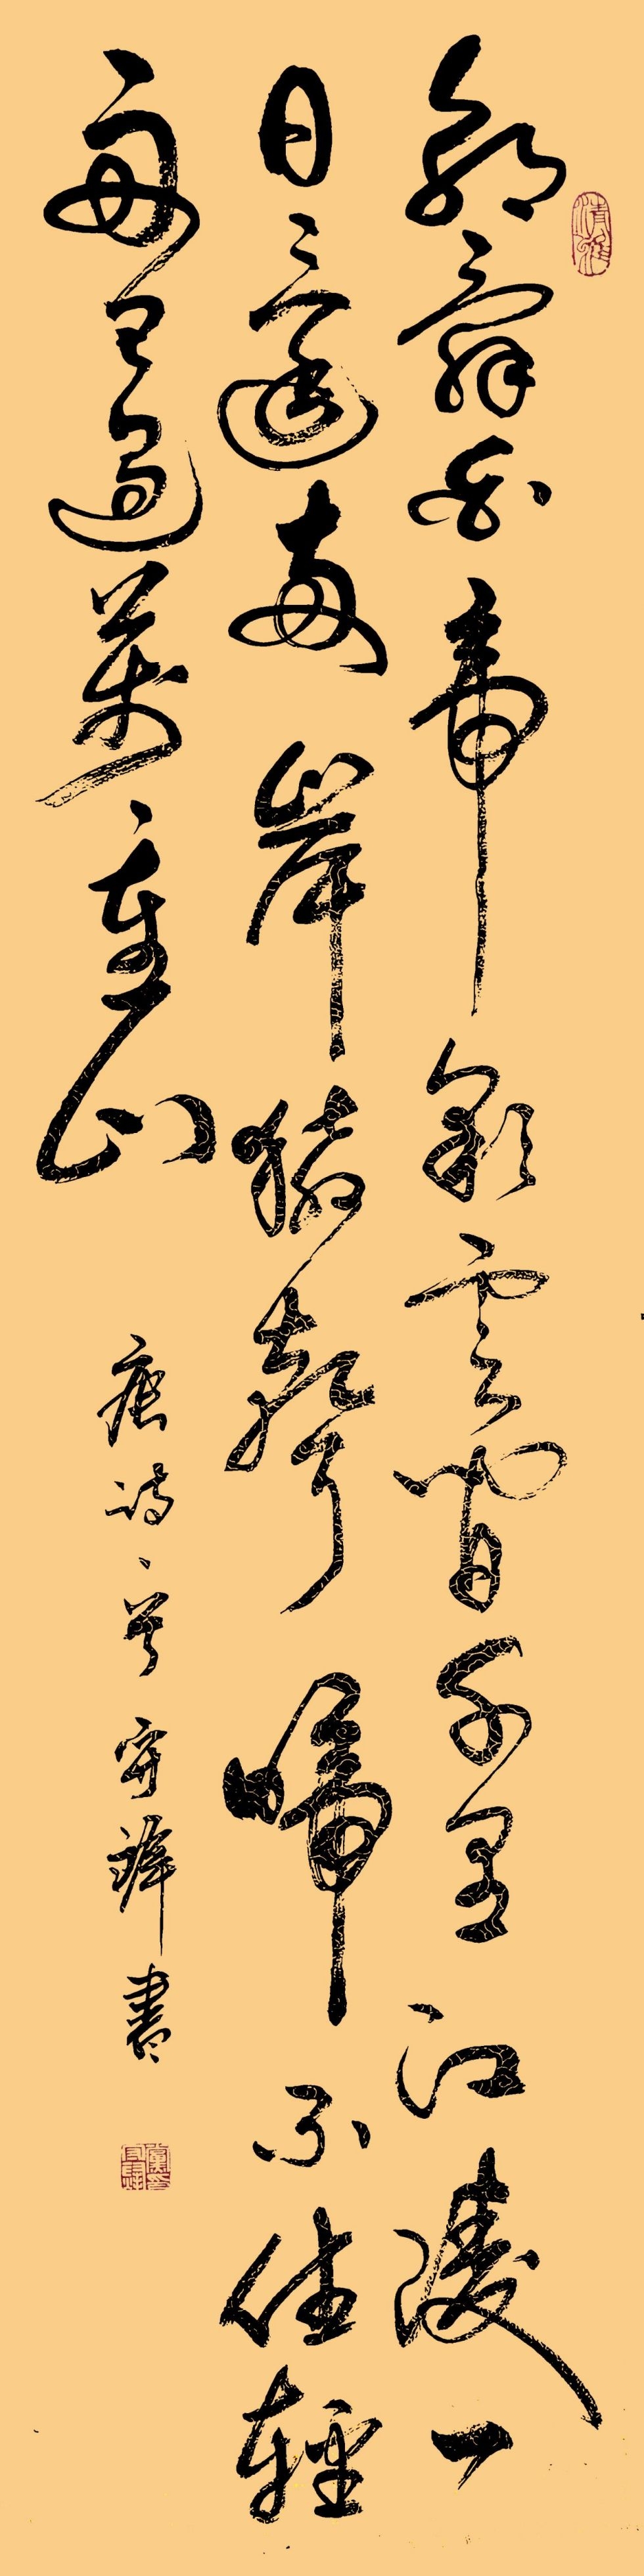 朝辭白帝彩雲間千里江陵一
日還兩岸猿聲啼不住輕
舟已過萬重山
唐詩一首 書
清雅